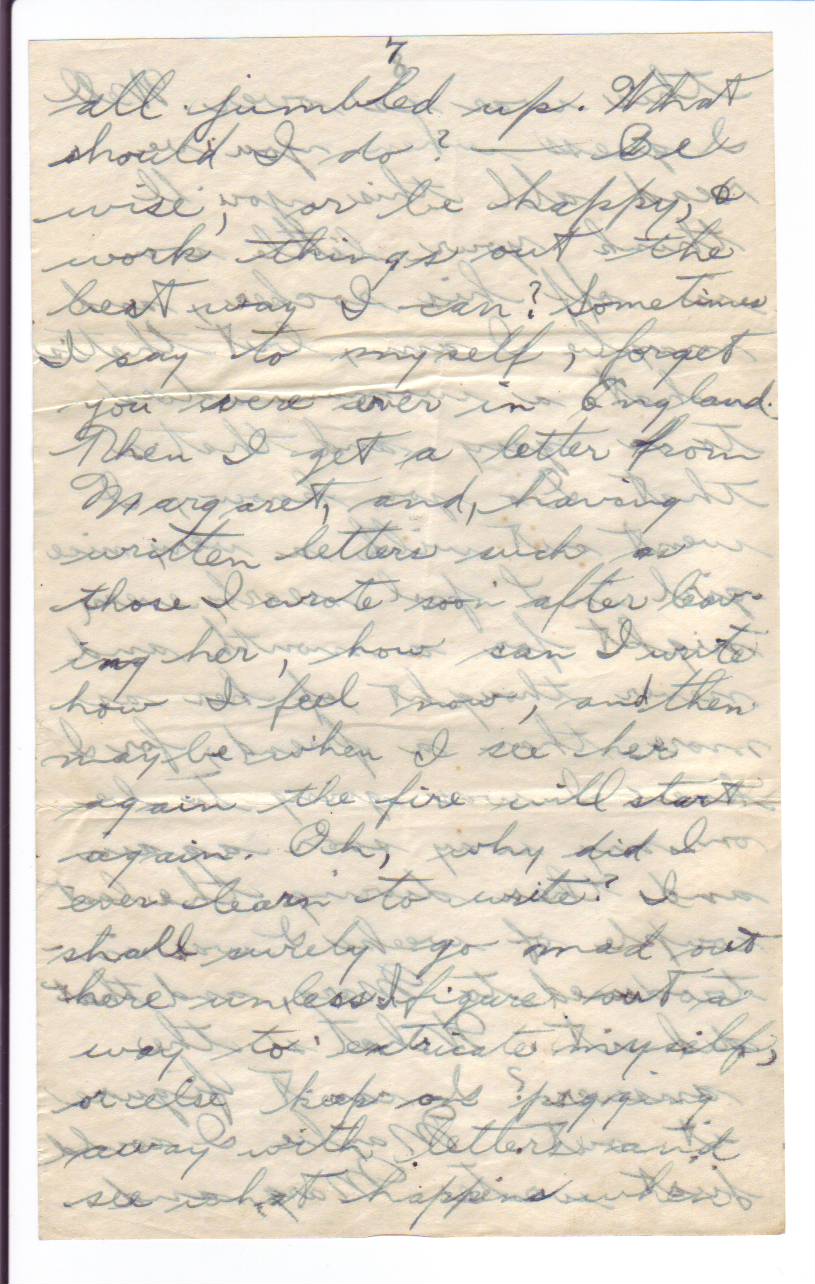 7
all jumbled up. What
should I do? — Be
wise, or be happy, &
work things out the
best way I can? Sometimes
I say to myself, forget
you were ever in England.
Then I get a letter from
Margaret, and, having
written letters such as
those I wrote soon after leav-
ing her, how can I write
how I feel now, and then
maybe when I see her
again the fire will start
again. Oh, why did I
ever learn to write? I
shall surely go mad out
here unless I figure out a
way to extricate myself,
or else keep on pegging
away with letters and
see what happens